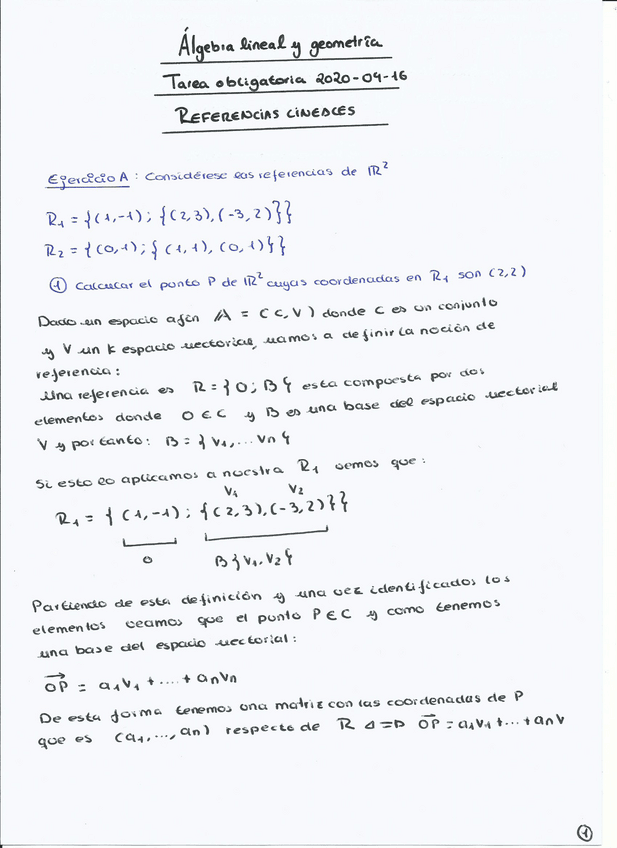 Álgebra lineal y geometría
Tarea obligatoria 2020-04-16
REFERENCIAS LINEALES
Ejercicio A: Considérese las referencias de ℝ²
R₁ = {(1,-1); {(2,3),(-3,2)}}
R₂ = {(0,1); {(1,1),(0,1)}}
① Calcular el punto P de ℝ² cuyas coordenadas en R₁ son (2,2)
Dado un espacio afín 𝔸 = (C,V) donde C es un conjunto
y V un k espacio vectorial, vamos a definir la noción de
referencia:
Una referencia es R = {O; B} esta compuesta por dos
elementos donde O ∈ C y B es una base del espacio vectorial
V y por tanto: B = {V₁,...Vn}
Si esto lo aplicamos a nuestra R₁ vemos que:
V₁ V₂
R₁ = {(1,-1); {(2,3),(-3,2)}}
O B{V₁,V₂}
Partiendo de esta definición y una vez identificados los
elementos veamos que el punto P ∈ C y como tenemos
una base del espacio vectorial:
OP⃗ = a₁V₁ + .... + anVn
De esta forma tenemos una matriz con las coordenadas de P
que es (a₁,...,an) respecto de R ⟺ OP⃗ = a₁V₁ + ... + anV
①